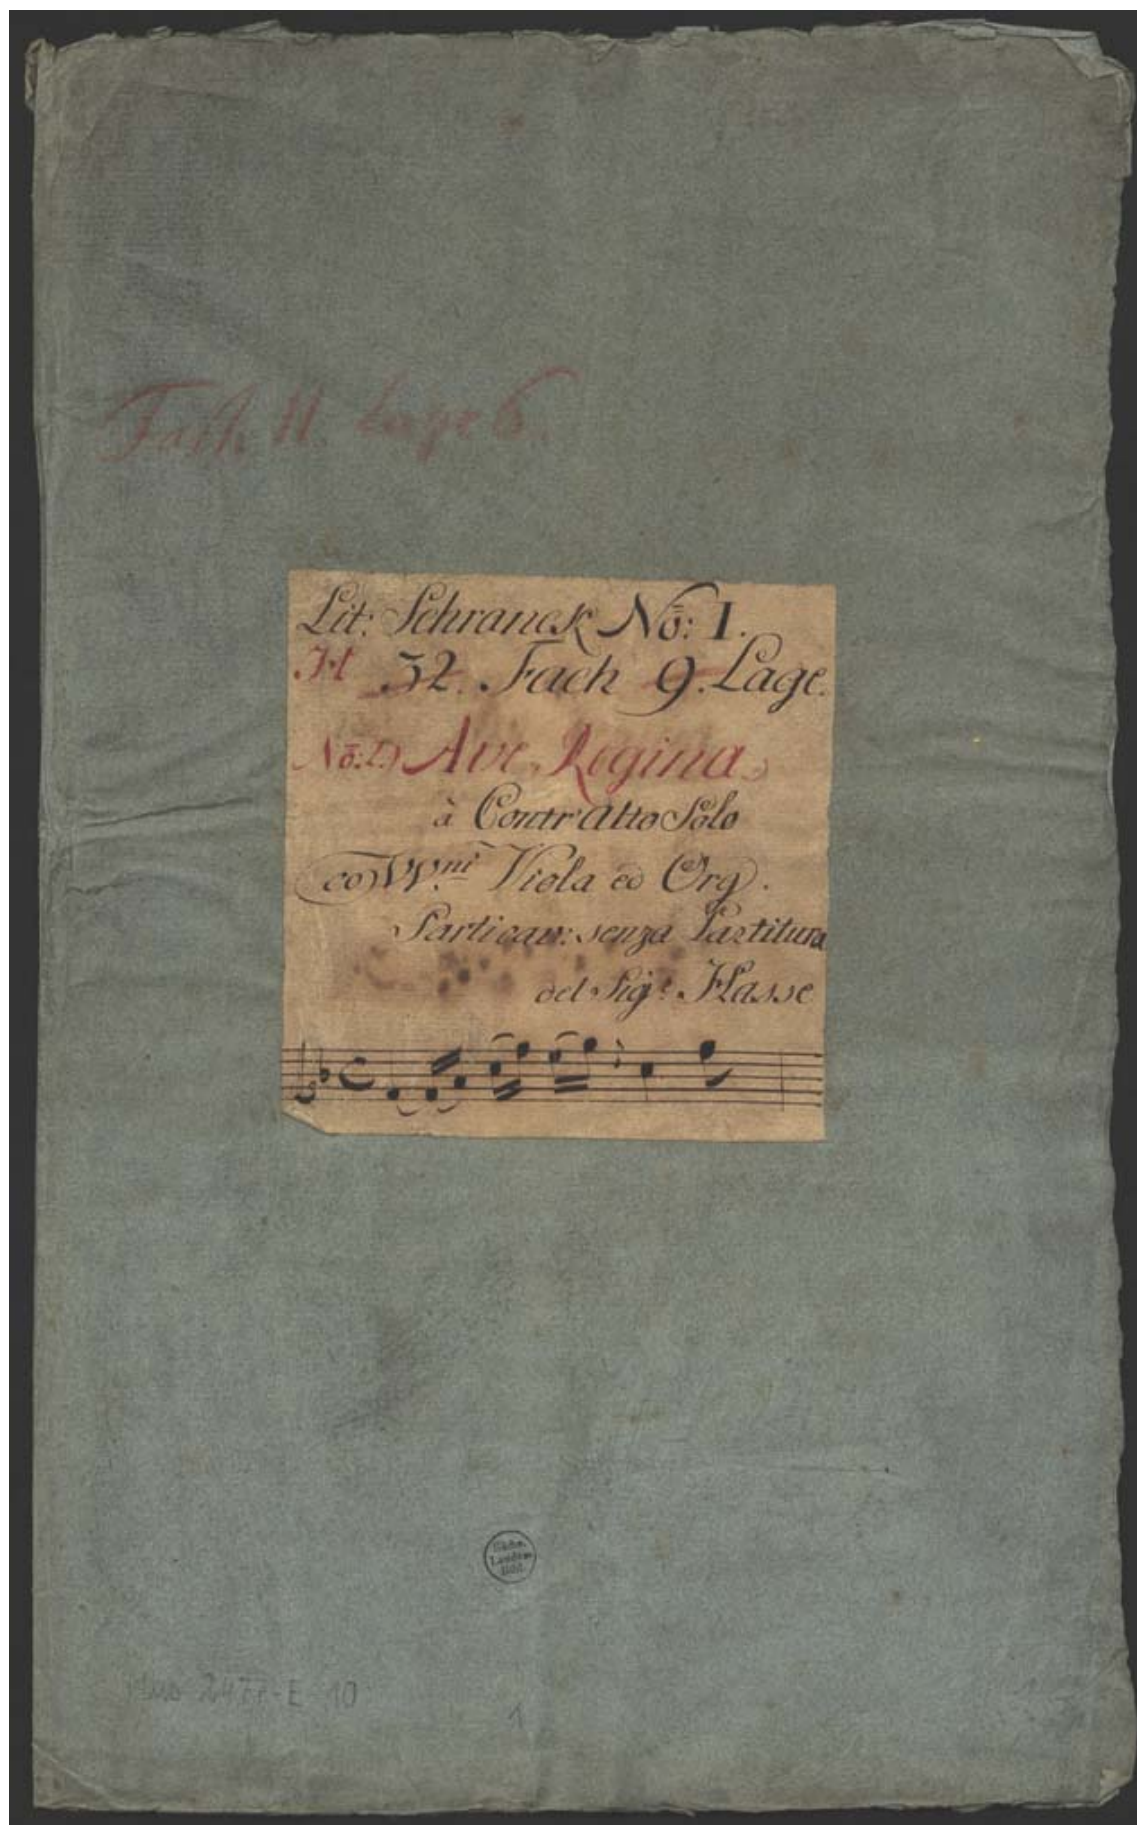 Fach 11 Lage 6.
Lit: Schranck No: I.
32. Fach 9. Lage.
No: Ave Regina
à Contr'Alto Solo
co VV.ni Viola ed Org.
Particav: senza Partitura
del Sigr Hasse
Sächs.
Landes-
Bibl.
Mus 2477-E-10
1